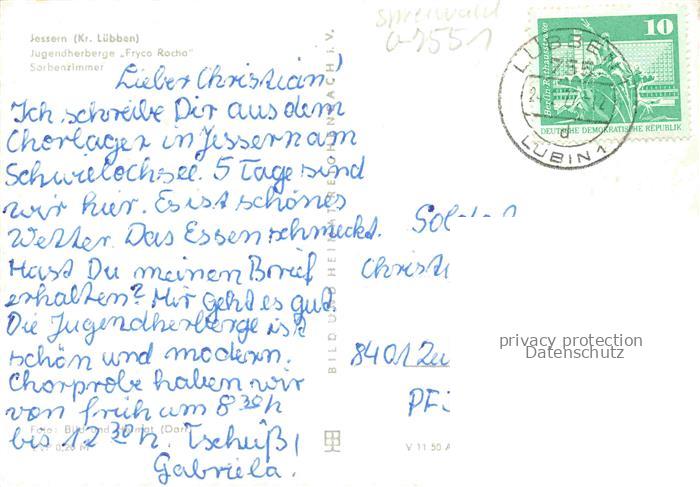 Jessern (Kr. Lübben)
Jugendherberge „Fryco Rocha"
Sorbenzimmer
Lieber Christian!
Ich schreibe Dir aus dem
Chorlager in Jessern am
Schwielochsee. 5 Tage sind
wir hier. Es ist schönes
Wetter. Das Essen schmeckt.
Hast Du meinen Brief
erhalten? Mir geht es gut.
Die Jugendherberge ist
schön und modern.
Chorprobe haben wir
von früh um 8 30 h
bis 12 30 h. Tschüß,
Gabriela.
Foto: Bild und Heimat
0,20 M
BILD UND HEIMAT REICHENBACH I. V.
V 11 50 A
Spreewald
0-7551
10
Berlin, Rathausstraße
DEUTSCHE DEMOKRATISCHE REPUBLIK
LÜBBEN 1
LUBIN 1
d
Christi
8401
PF
privacy protection
Datenschutz